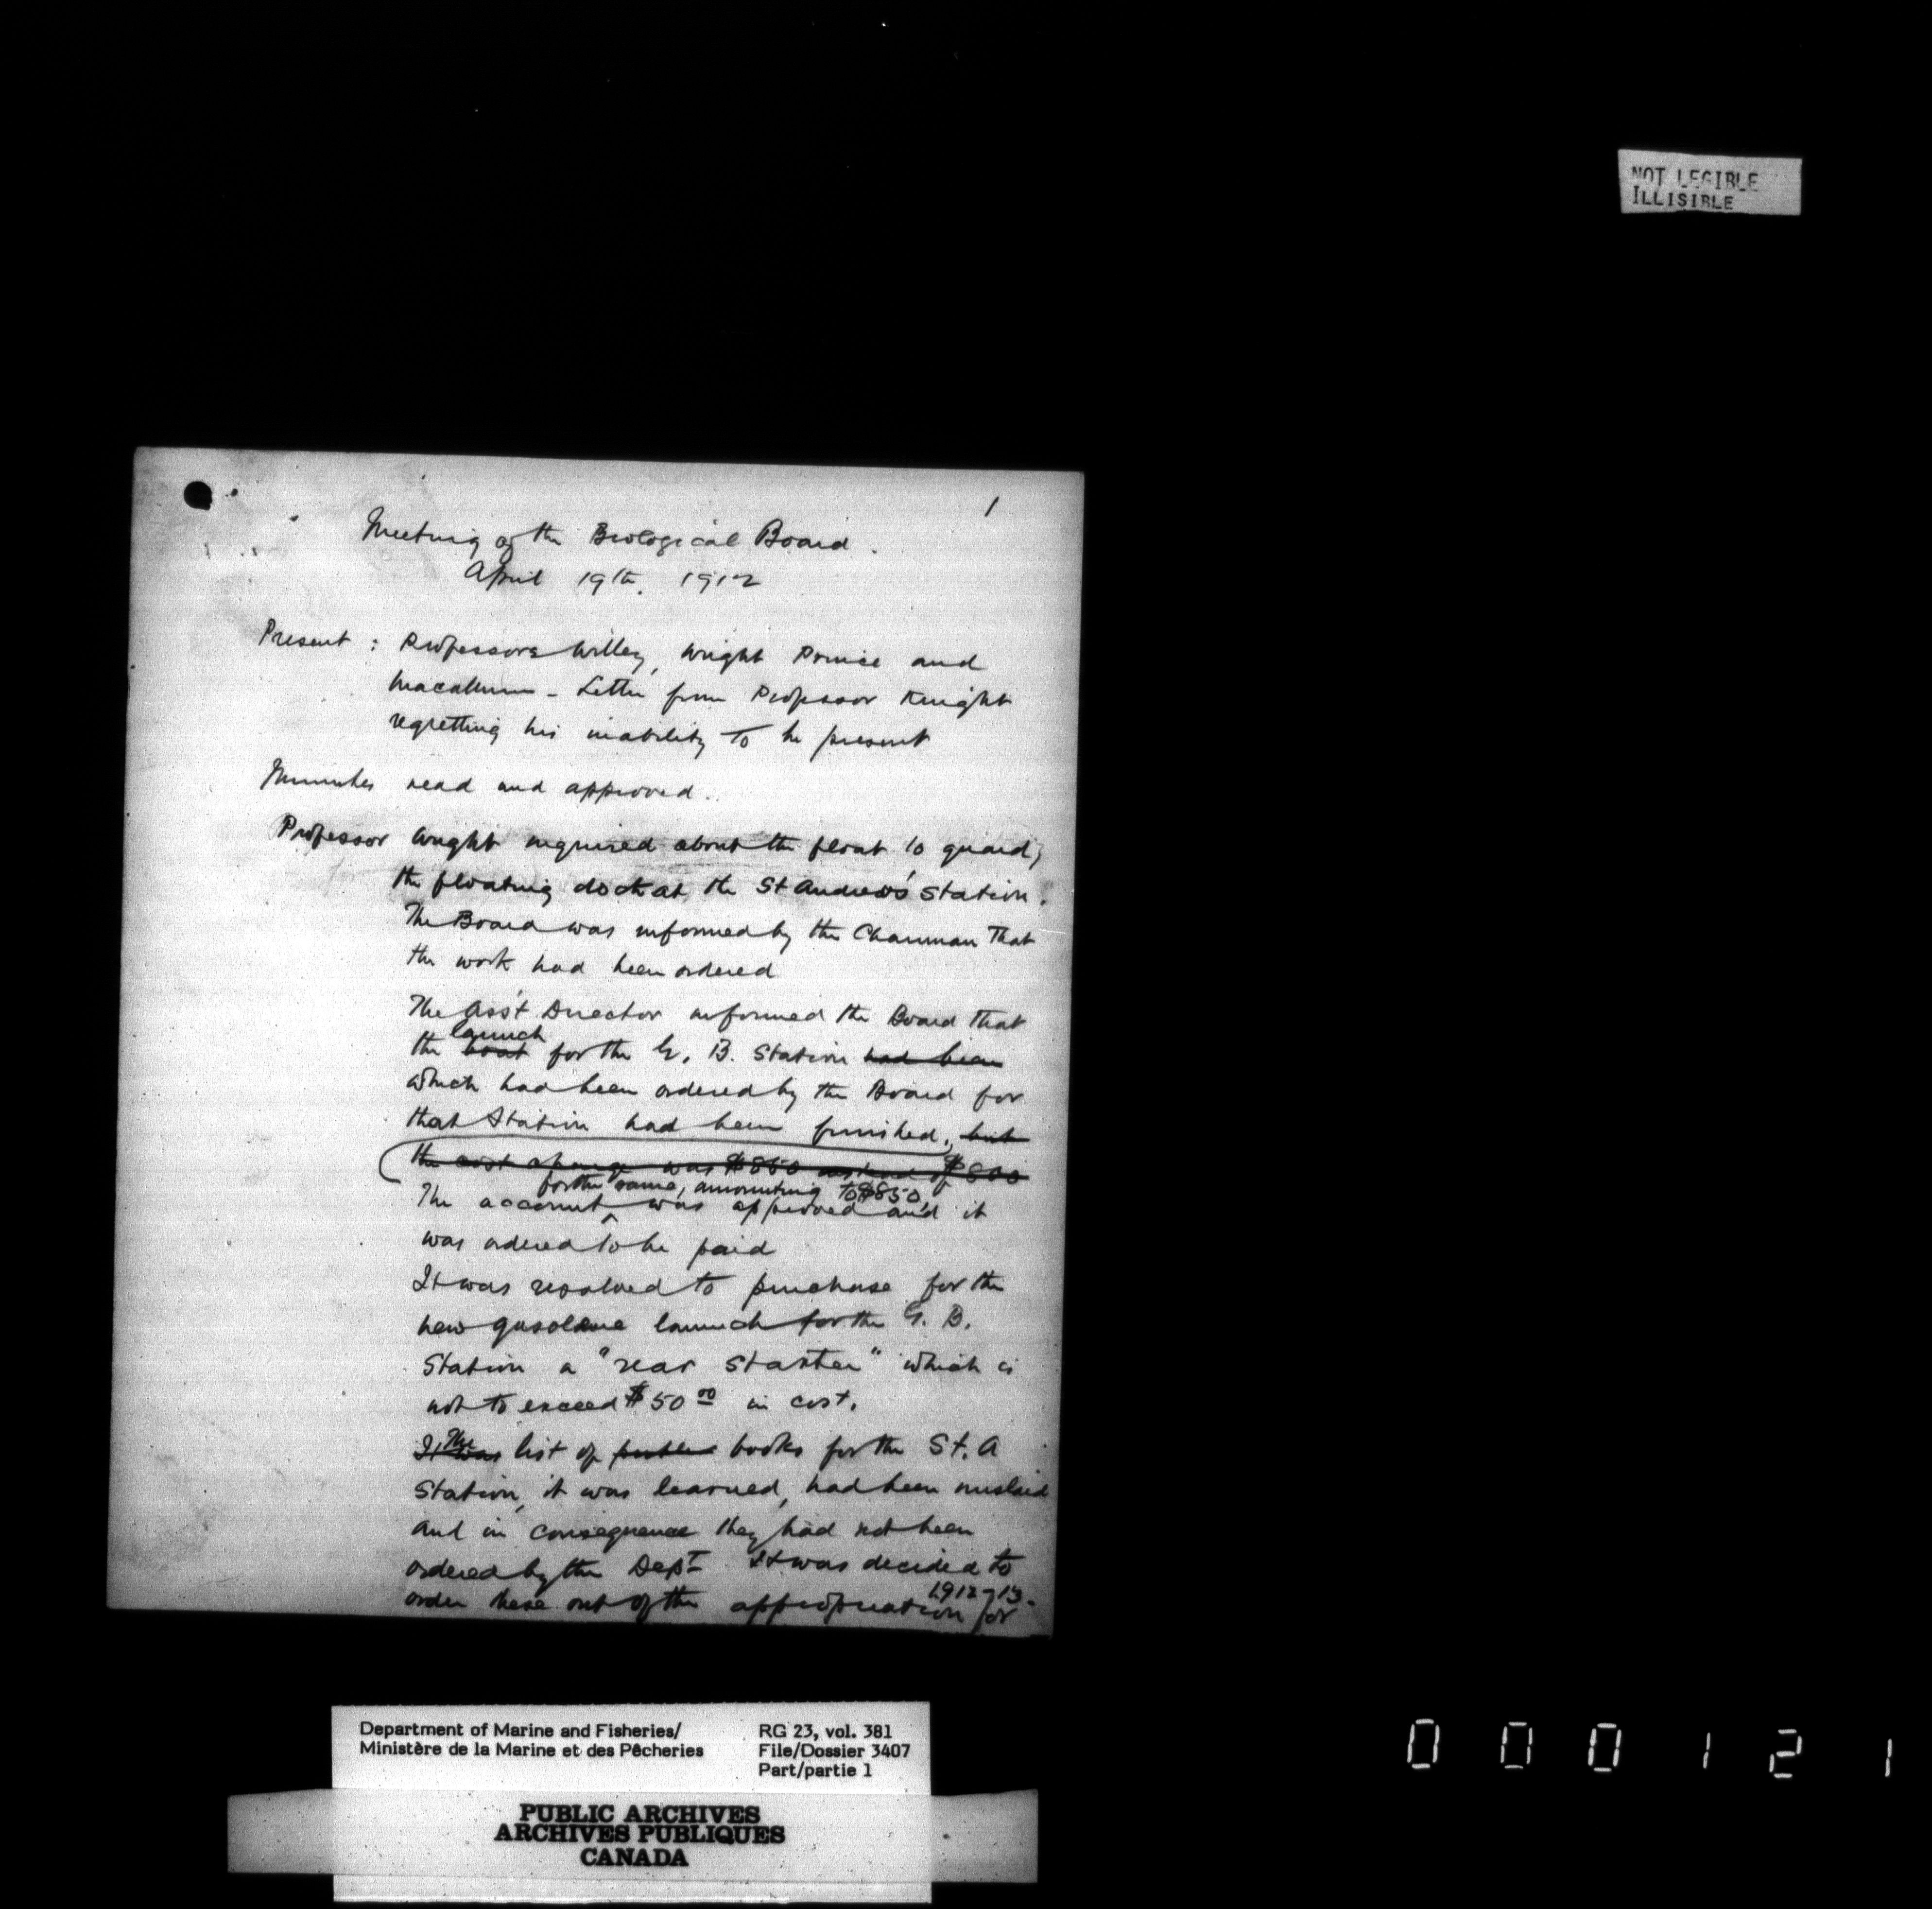 NOT LEGIBLE
ILLISIBLE
1
Meeting of the Biological Board.
April 19th. 1912
Present : Professors Willey, Wright Prince and
Macallum - Letter from Professor Knight
regretting his inability to be present
Minutes read and approved.
Professor Wright inquired about the float to guard
the floating dock at the St Andrews' Station.
The Board was informed by the Chairman that
the work had been ordered
The Ass't Director informed the Board that
launch
the boat for the G. B. Station had been
which had been ordered by the Board for
that Station had been finished, but
the cost charge was $850 instead of $800
for the same, amounting to $850,
The account was approved and it
was ordered to be paid
It was resolved to purchase for the
new gasolene launch for the G. B.
Station a "rear starter" which is
not to exceed $50 00 in cost.
The
It was list of books for the St. A
Station, it was learned, had been mislaid
and in consequence they had not been
ordered by the Dept It was decided to
1912-13.
order these out of the appropriation for
Department of Marine and Fisheries/
Ministère de la Marine et des Pêcheries
RG 23, vol. 381
File/Dossier 3407
Part/partie 1
PUBLIC ARCHIVES
ARCHIVES PUBLIQUES
CANADA
000121